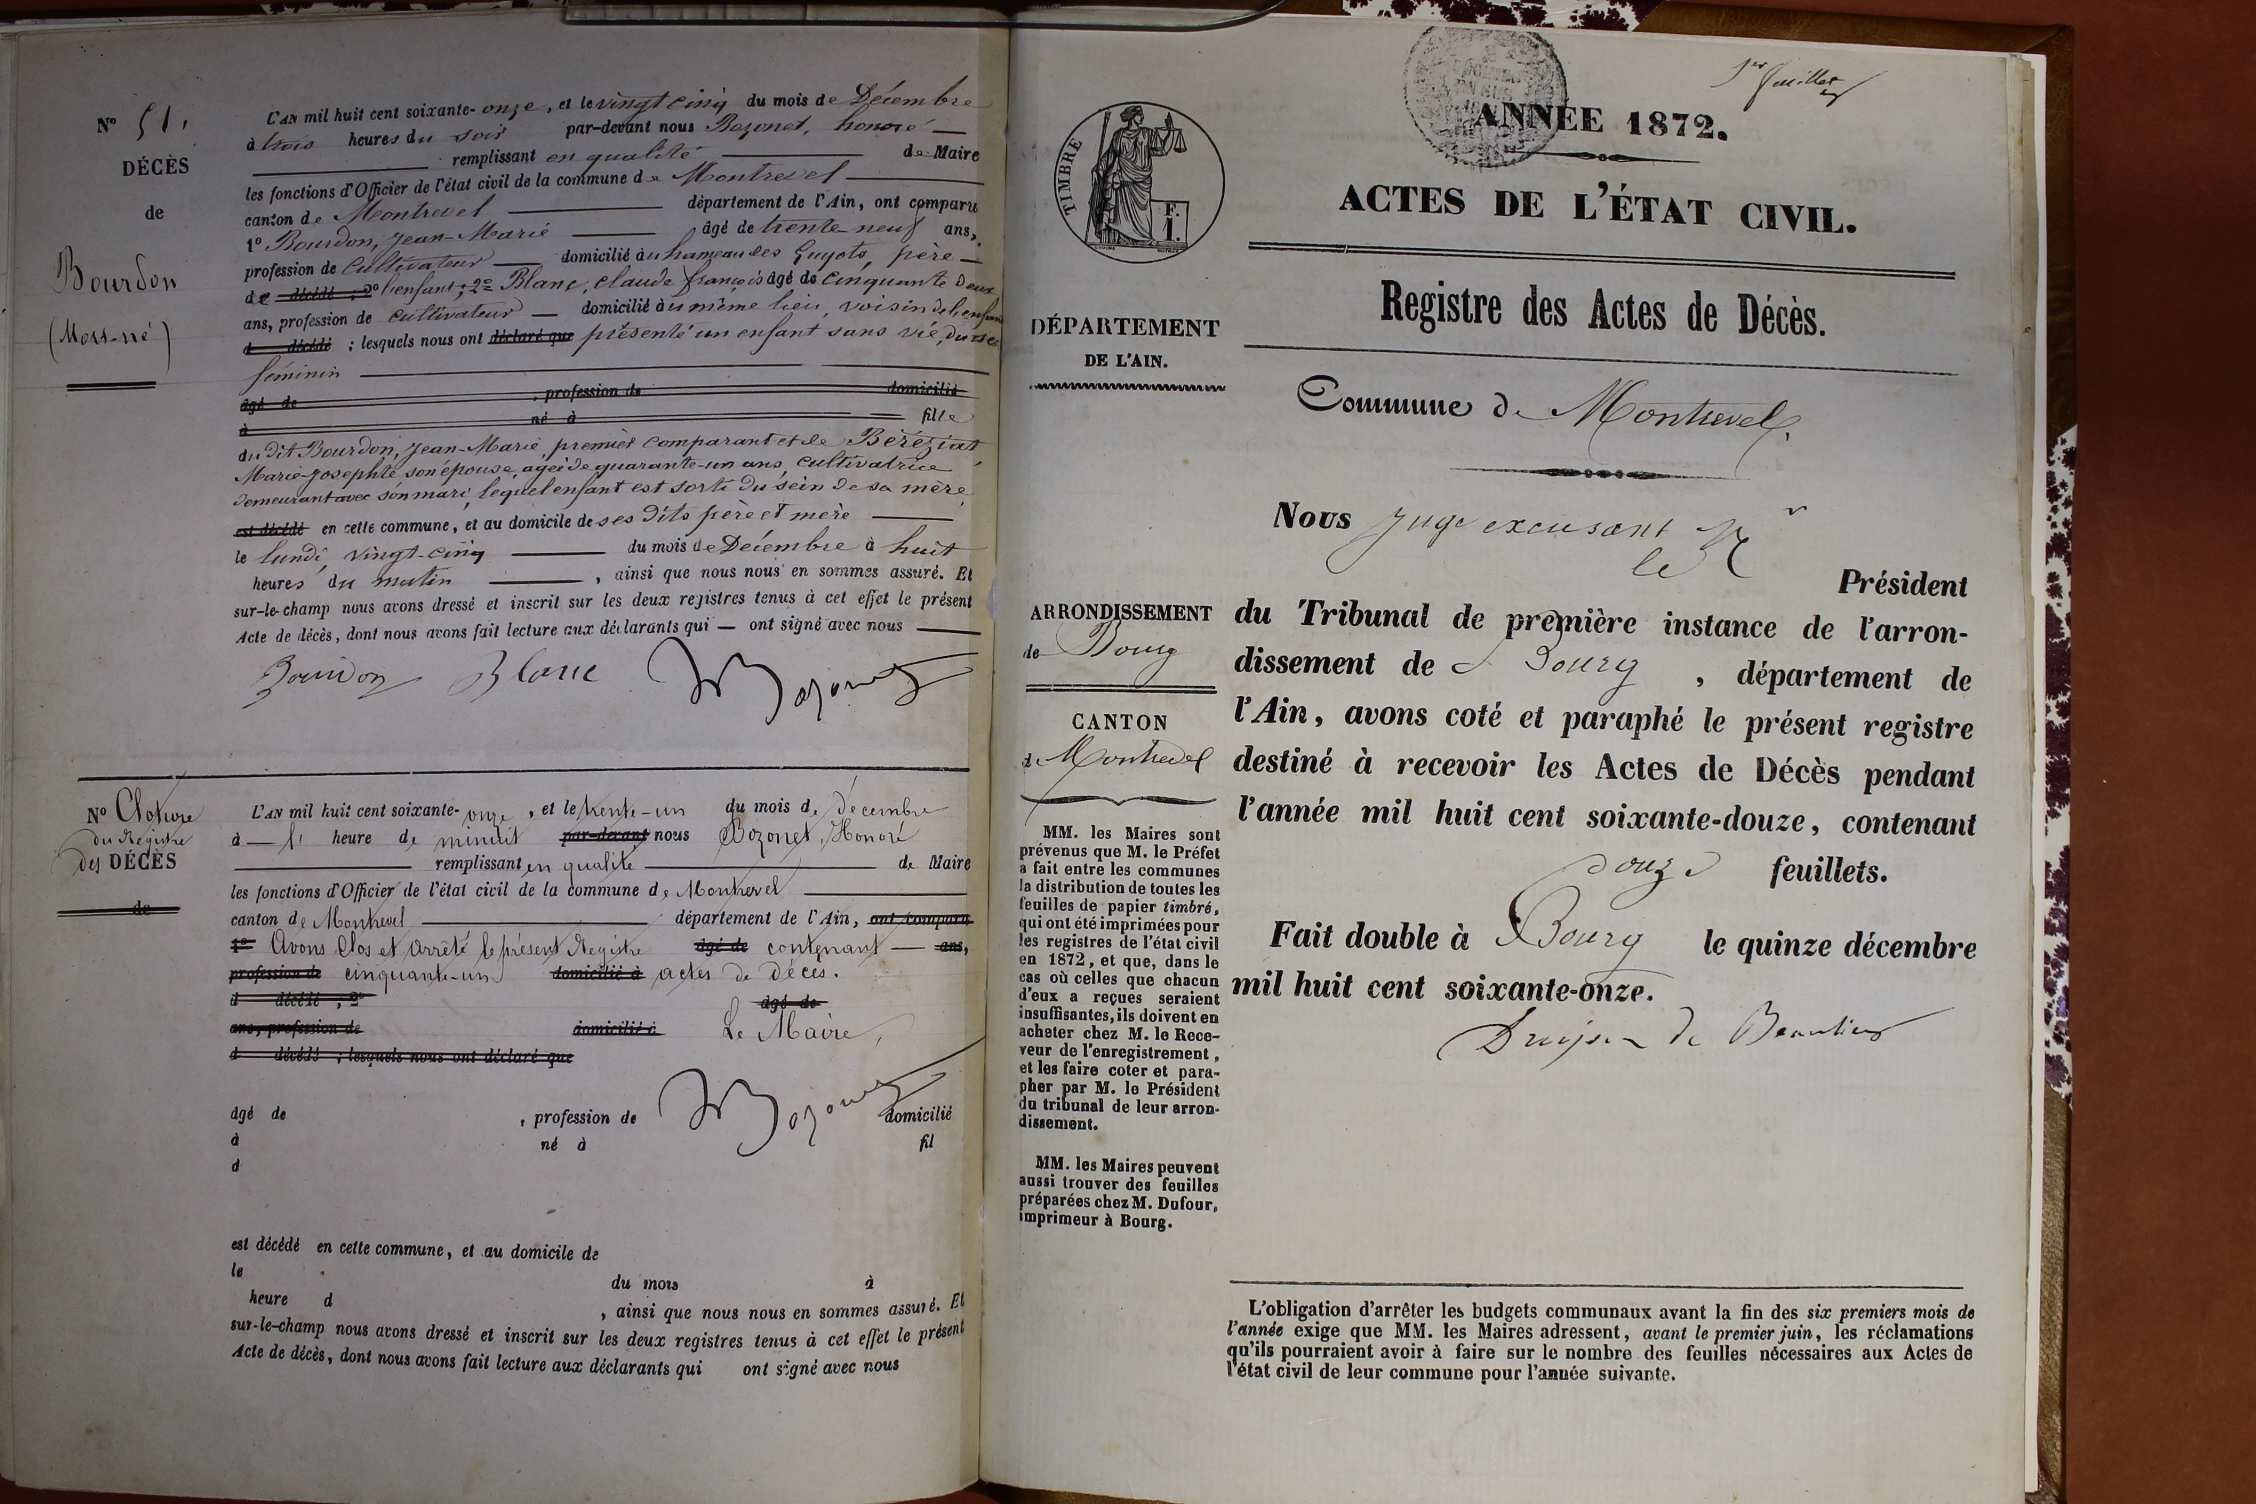 N° 51.
DÉCÈS
de
Bourdon
(Mort-né)
L'AN mil huit cent soixante-onze, et le vingt cinq du mois de Décembre
à trois heures du soir par-devant nous Bozonet, honoré
remplissant en qualité de Maire
les fonctions d'Officier de l'état civil de la commune de Montrevel
canton de Montrevel département de l'Ain, ont comparu
1° Bourdon, Jean-Marie âgé de trente-neuf ans,
profession de Cultivateur domicilié au hameau des Guyots, père
de décédé ; 2° l'enfant ; 2° Blanc, Claude françois âgé de cinquante deux
ans, profession de cultivateur domicilié au même lieu, voisin de l'enfant
d décédé ; lesquels nous ont déclaré que présenté un enfant sans vie, du sexe
féminin
âgé de , profession de domicilié
à né à fille
du dit Bourdon, Jean-Marie, premier comparant et de Béréziat,
Marie-Josephte son épouse, agée de quarante-un ans, cultivatrice
demeurant avec son mari, lequel enfant est sorti du sein de sa mère
est décédé en cette commune, et au domicile de ses dits père et mère
le lundi, vingt-cinq du mois de Décembre à huit
heures du matin , ainsi que nous nous en sommes assuré. Et
sur-le-champ nous avons dressé et inscrit sur les deux registres tenus à cet effet le présent
Acte de décès, dont nous avons fait lecture aux déclarants qui — ont signé avec nous
Bourdon Blanc Bozonet
N° Cloture
du Régistre
des DÉCÈS
de
L'AN mil huit cent soixante-onze, et le trente-un du mois de décembre
à l' heure de minuit par-devant nous Bozonet, Honoré
remplissant en qualité de Maire
les fonctions d'Officier de l'état civil de la commune de Montrevel
canton de Montrevel département de l'Ain, ont comparu
1° Avons Clos et arrêté le présent Registre âgé de contenant ans,
profession de cinquante-un domicilié à actes de Décès.
d décédé ; 2° âgé de
ans, profession de domicilié à Le Maire,
d décédé ; lesquels nous ont déclaré que
Bozonet
âgé de , profession de domicilié
à né à fil
d
est décédé en cette commune, et au domicile de
le du mois à
heure d , ainsi que nous nous en sommes assuré. Et
sur-le-champ nous avons dressé et inscrit sur les deux registres tenus à cet effet le présent
Acte de décès, dont nous avons fait lecture aux déclarants qui ont signé avec nous
1er feuillet
TIMBRE
F.
1.
ANNÉE 1872.
ACTES DE L'ÉTAT CIVIL.
Registre des Actes de Décès.
DÉPARTEMENT
DE L'AIN.
Commune de Montrevel.
Nous Juge excusant Mr
le
Président
du Tribunal de première instance de l'arron-
dissement de Bourg , département de
l'Ain, avons coté et paraphé le présent registre
destiné à recevoir les Actes de Décès pendant
l'année mil huit cent soixante-douze, contenant
douze feuillets.
Fait double à Bourg le quinze décembre
mil huit cent soixante-onze.
de Beaulieu
ARRONDISSEMENT
de Bourg
CANTON
de Montrevel
MM. les Maires sont
prévenus que M. le Préfet
a fait entre les communes
la distribution de toutes les
feuilles de papier timbré,
qui ont été imprimées pour
les registres de l'état civil
en 1872, et que, dans le
cas où celles que chacun
d'eux a reçues seraient
insuffisantes, ils doivent en
acheter chez M. le Rece-
veur de l'enregistrement,
et les faire coter et para-
pher par M. le Président
du tribunal de leur arron-
dissement.
MM. les Maires peuvent
aussi trouver des feuilles
préparées chez M. Dufour,
imprimeur à Bourg.
L'obligation d'arrêter les budgets communaux avant la fin des six premiers mois de
l'année exige que MM. les Maires adressent, avant le premier juin, les réclamations
qu'ils pourraient avoir à faire sur le nombre des feuilles nécessaires aux Actes de
l'état civil de leur commune pour l'année suivante.